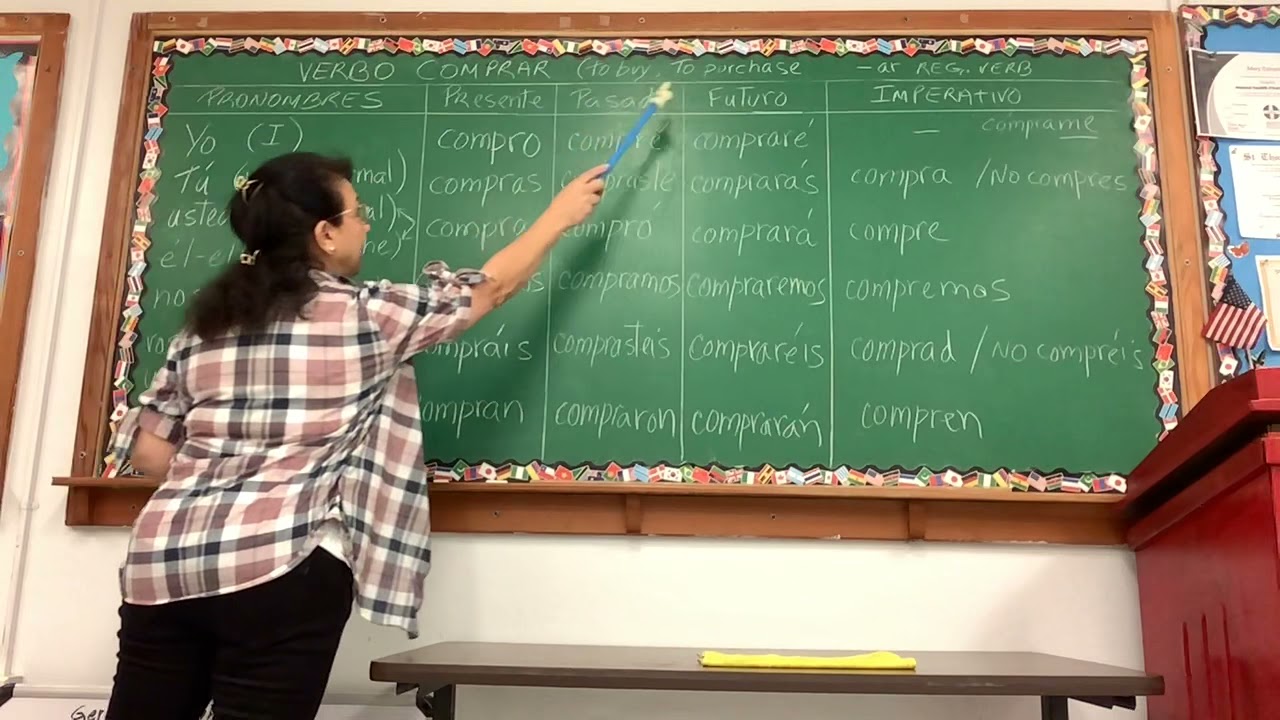 VERBO COMPRAR (to buy, To purchase -ar REG. VERB
PRONOMBRES Presente Pasado FuTuro IMPERATIVO
Yo (I) compro compré compraré — cómprame
Tú compras comprarás compra / No compres
compra compró comprará compre
él-el
compramos compraremos compremos
compráis comprasteis compraréis comprad / No compréis
compran compraron comprarán compren